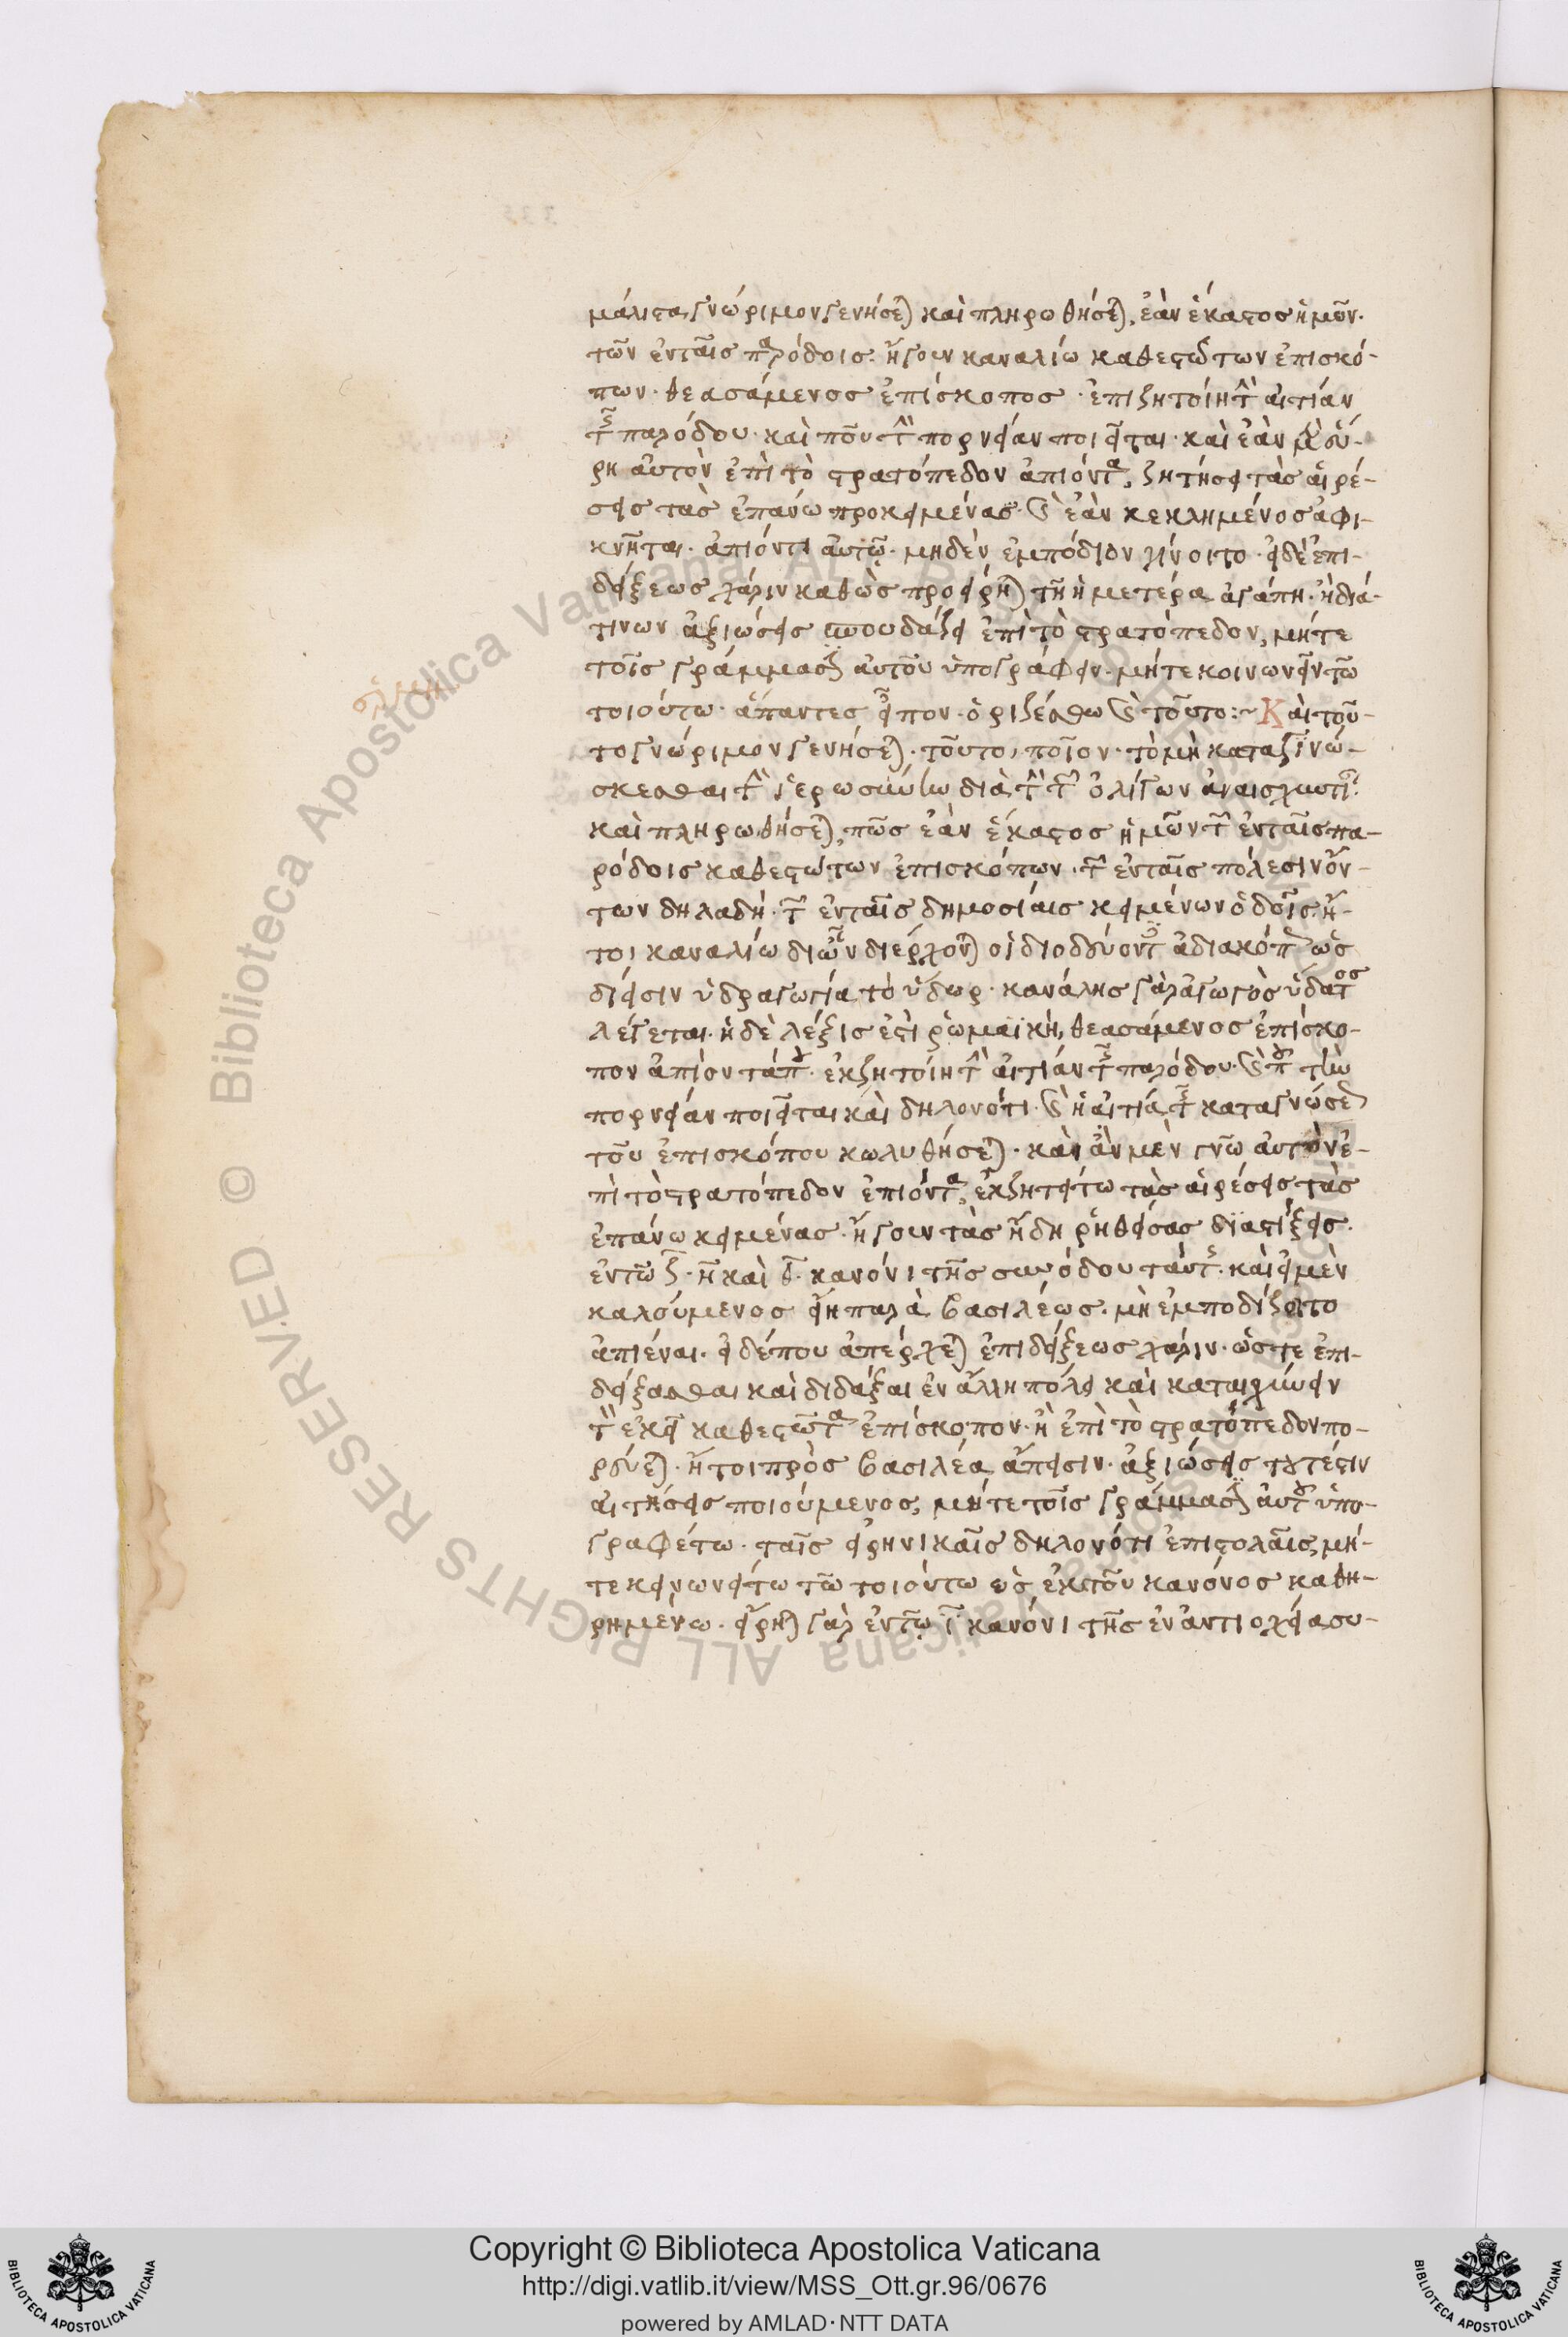 μάλιστα γνώριμον γενήσεται καὶ πληρωθήσεται, ἐὰν ἕκαστος ἡμῶν.
τῶν ἐν ταῖς παρόδοις. ἤγουν καναλίω καθεστώτων ἐπισκό-
πων. θεασάμενος ἐπίσκοπος. ἐπιζητοίη τὴν αἰτίαν
τῆς παρόδου. καὶ ποῦ τὴν πορείαν ποιεῖται. καὶ ἐὰν μὲν εὕ-
ρη αὐτὸν ἐπὶ τὸ στρατόπεδον ἀπιόντα, ζητήσει τὰς αἱρέ-
σεις τὰς ἐπάνω προκειμένας. καὶ ἐὰν κεκλημένος ἀφι-
κνῆται. ἀπιόντι αὐτῷ. μηδὲν ἐμπόδιον γίνοιτο. εἰ δὲ ἐπι-
δείξεως χάριν καθὼς προείρηται τῆ ἡμετέρα ἀγάπη. ἢ διά-
τινων ἀξιώσεις σπουδάζει ἐπὶ τὸ στρατόπεδον, μήτε
τοῖς γράμμασιν αὐτοῦ ὑπογράφειν. μήτε κοινωνεῖν τῶ
τοιούτω. ἅπαντες εἶπον. ὁριζέσθω καὶ τοῦτο:~ Καὶ τοῦ-
το γνώριμον γενήσεται. τοῦτο, ποῖον. τὸ μὴ καταγινώ-
σκεσθαι τὴν ἱερωσύνην διὰ τὴν τῶν ὀλίγων ἀναισχυντίαν.
καὶ πληρωθήσεται, πῶς ἐὰν ἕκαστος ἡμῶν τῶν ἐν ταῖς πα-
ρόδοις καθεστώτων ἐπισκόπων. τῶν ἐν ταῖς πόλεσιν ὄν-
των δηλαδή. τῶν ἐν ταῖς δημοσίαις κειμένων ὁδοῖς. ἤ-
τοι καναλίω δι ὧν διέρχονται οἱ διοδεύοντες ἀδιακόπτως ὡς
δίεισιν ὑδραγωγία τὸ ὕδωρ. κανάλης γὰρ ἀγωγὸς ὕδατος
λέγεται. ἡ δὲ λέξις ἐστὶ ῥωμαϊκὴ, θεασάμενος ἐπίσκο-
πον ἀπιόντά που. ἐκζητοίη τὴν αἰτίαν τῆς παρόδου. καὶ ποῦ τὴν
πορείαν ποιεῖται καὶ δηλονότι. καὶ ἡ αἰτία τῆς καταγνώσεως
τοῦ ἐπισκόπου κωλυθήσεται. κἂν ἂν μὲν γνῶ αὐτὸν ἐ-
πὶ τὸ στρατόπεδον ἐπιόντα, ἐκζητείτω τὰς αἱρέσεις τὰς
ἐπάνω κειμένας. ἤγουν τὰς ἤδη ῥηθείσας διαστίξεις.
ἐν τῶ ζ. η καὶ θ. κανόνι τῆς συνόδου ταύτης. καὶ εἰ μὲν
καλούμενος εἴη παρὰ βασιλέως. μὴ ἐμποδίζοιτο
ἀπιέναι. εἰ δέ που ἀπέρχεται ἐπιδείξεως χάριν. ὥστε ἐπι-
δείξασθαι καὶ διδάξαι ἐν ἄλλη πόλει καὶ καταισχύνειν
τὸν ἐκεῖ καθεστῶτα ἐπίσκοπον. ἢ ἐπὶ τὸ στρατόπεδον πο-
ρεύεται. ἤτοι πρὸς βασιλέα ἄπεισιν. ἀξιώσεις τουτέστιν
αἰτήσεις ποιούμενος, μήτε τοῖς γράμμασιν αὐτοῦ ὑπο-
γραφέτω. ταῖς εἰρηνικαῖς δηλονότι ἐπιστολαῖς, μή-
τε κεινωνείτω τῶ τοιούτω ὡς ἐκ τοῦ κανόνος καθη-
ρημένω. εἴρηται γὰρ ἐν τῶ ι κανόνι τῆς ἐν ἀντιοχεία συ-